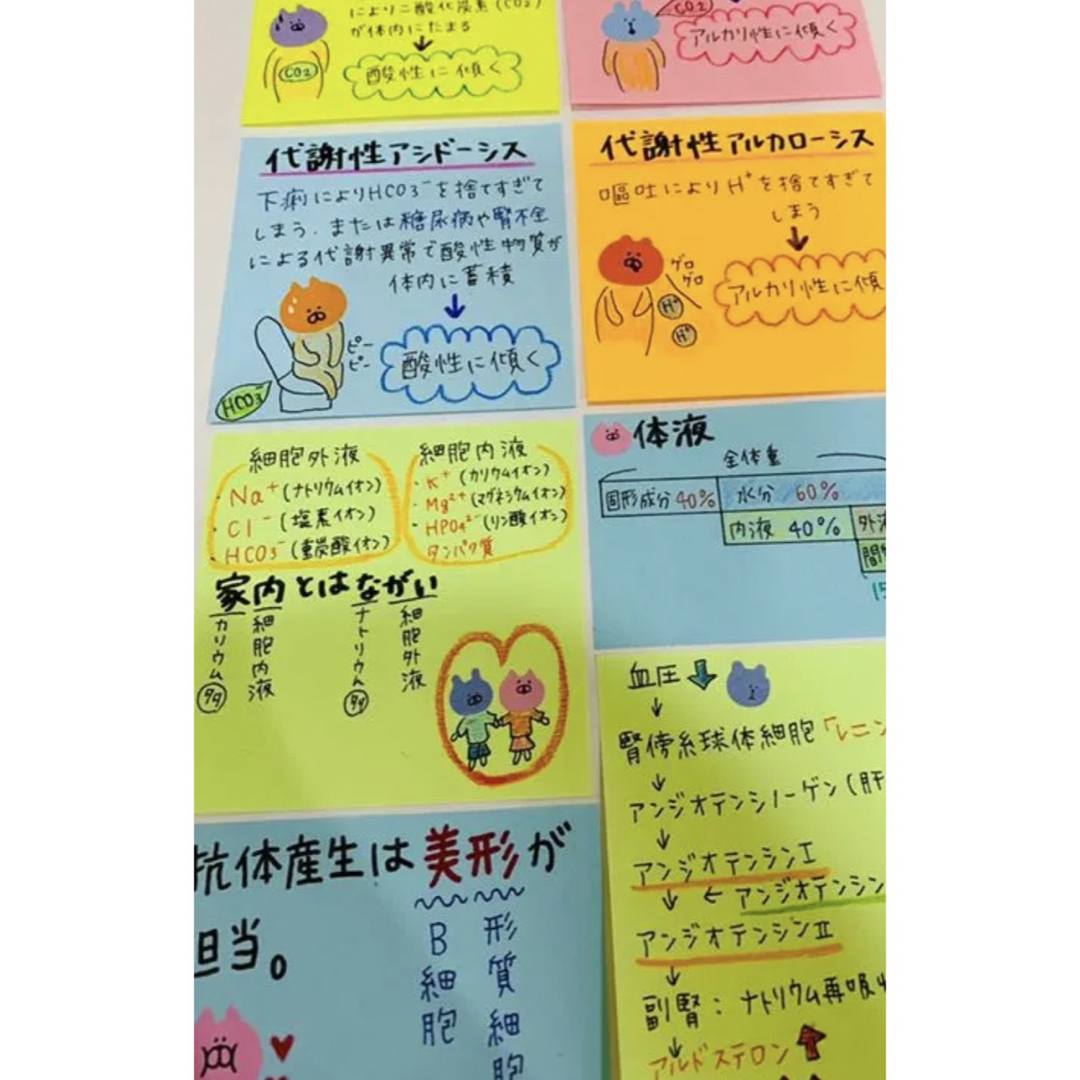 により二酸化炭素(CO2)
が体内にたまる
↓
CO2
酸性に傾く
CO2
アルカリ性に傾く
代謝性アシドーシス
下痢によりHCO3⁻を捨てすぎて
しまう.または糖尿病や腎不全
による代謝異常で酸性物質が
体内に蓄積
↓
ピー
ピー
酸性に傾く
HCO3⁻
代謝性アルカローシス
嘔吐によりH⁺を捨てすぎて
しまう
↓
ゲロ
ゲロ
H⁺
H⁺
アルカリ性に傾
細胞外液
・Na⁺(ナトリウムイオン)
・Cl⁻(塩素イオン)
・HCO3⁻(重炭酸イオン)
細胞内液
・K⁺(カリウムイオン)
・Mg²⁺(マグネシウムイオン)
・HPO4²⁻(リン酸イオン)
タンパク質
家内とはながい
カリウム多
細胞内液
ナトリウム多
細胞外液
体液
全体重
固形成分40% 水分 60%
内液 40% 外液
間
15
血圧↓
↓
腎傍糸球体細胞「レニン
↓
アンジオテンシノーゲン(肝
↓
アンジオテンシンⅠ
↓ ← アンジオテンシン
アンジオテンシンⅡ
↓
副腎:ナトリウム再吸収
アルドステロン↑
抗体産生は美形が
担当。
B細胞
形質細胞